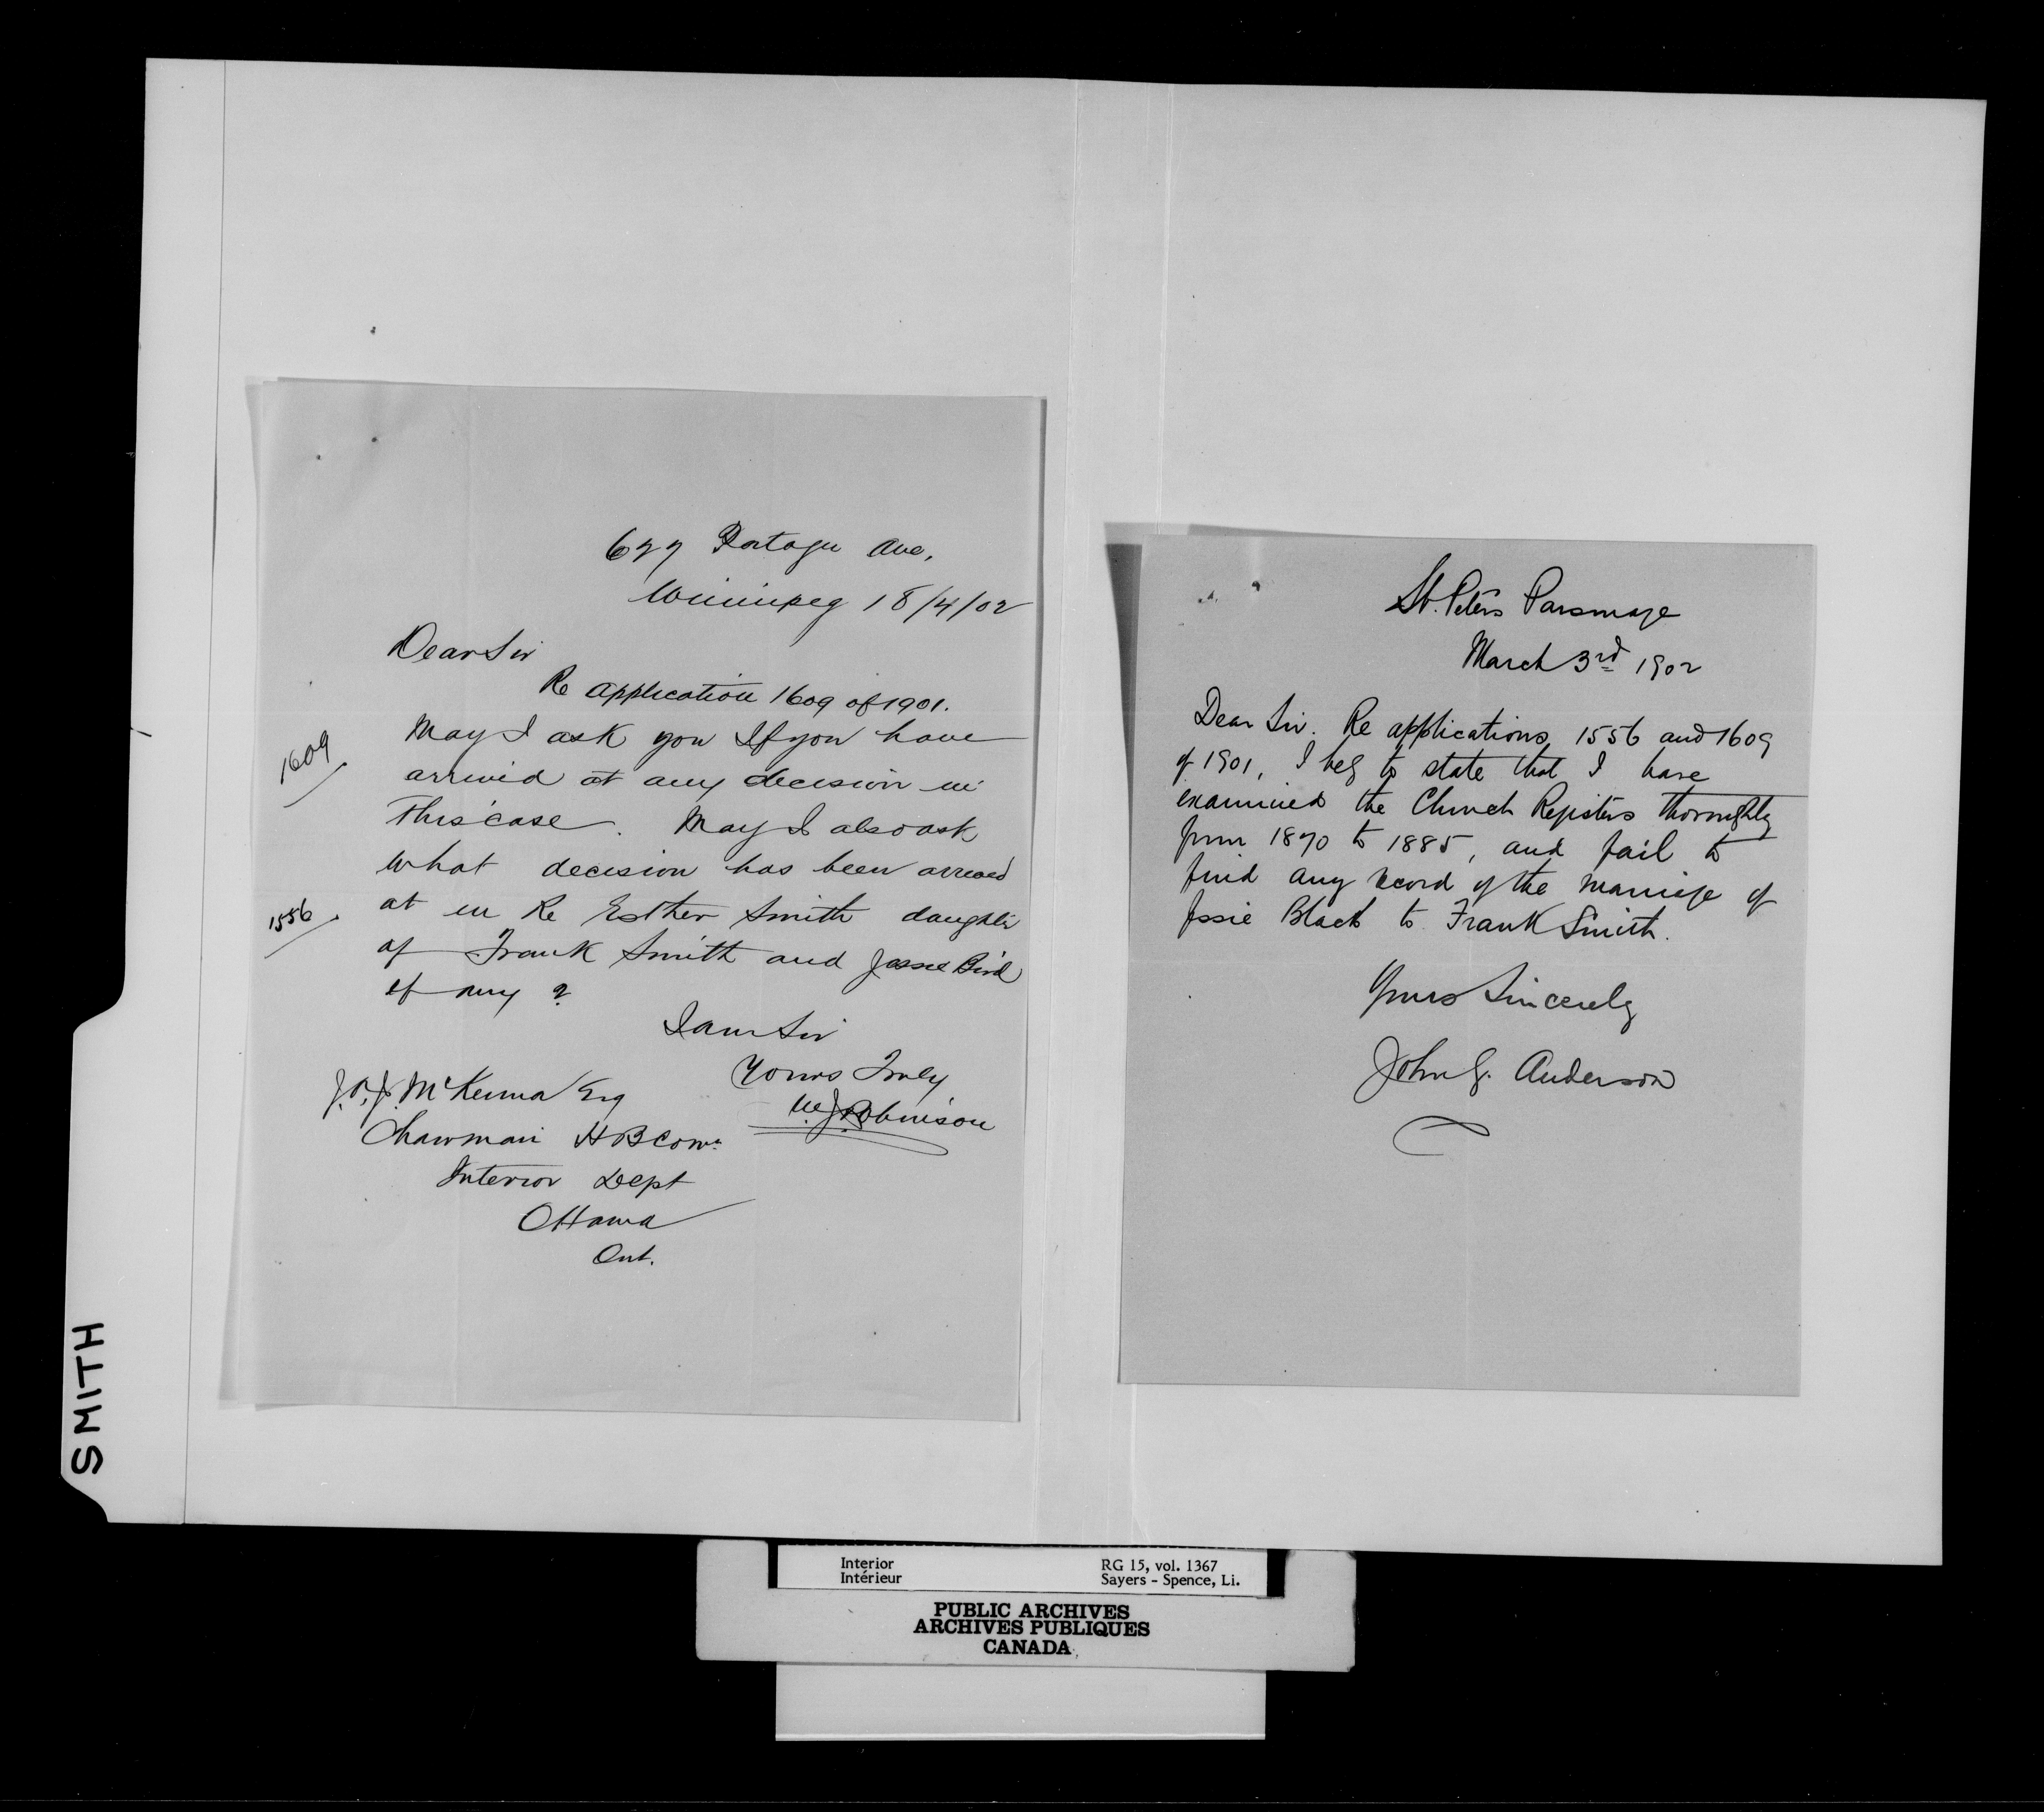 677 Portage Ave,
Winnipeg 18/4/02
Dear Sir
Re application 1609 of 1901.
May I ask you If you have
arrived at any decision in
This case. May I also ask
what decision has been arrived
at in Re Esther Smith daughter
of Frank Smith and Jessie Bird
if any ?
I am Sir
Yours Truly
W. J. Robinson
J. A. J. McKenna Esq
Chairman H B Comn.
Interior Dept
Ottawa
Ont.
1609
1556
St. Peters Parsonage
March 3rd 1902
Dear Sir. Re applications 1556 and 1609
of 1901, I beg to state that I have
examined the Church Registers thoroughly
from 1870 to 1885, and fail to
find any record of the marriage of
Jessie Black to Frank Smith.
Yours Sincerely
John G. Anderson
SMITH
Interior
Intérieur
RG 15, vol. 1367
Sayers - Spence, Li.
PUBLIC ARCHIVES
ARCHIVES PUBLIQUES
CANADA